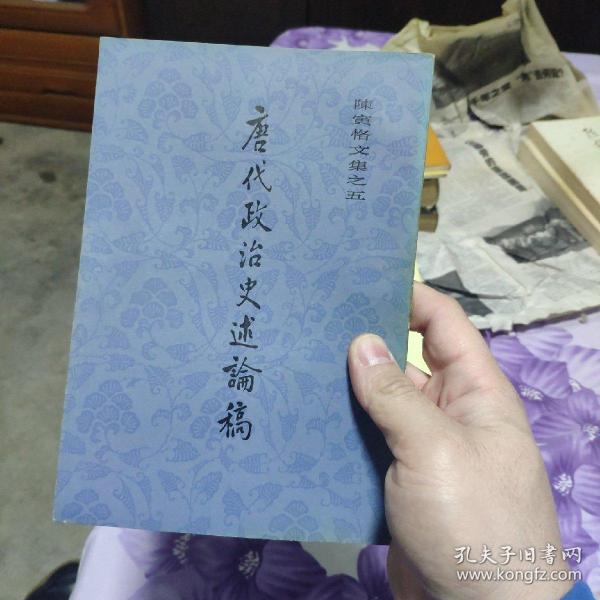 陳寅恪文集之五
唐代政治史述論稿
孔夫子旧书网
www.kongfz.com